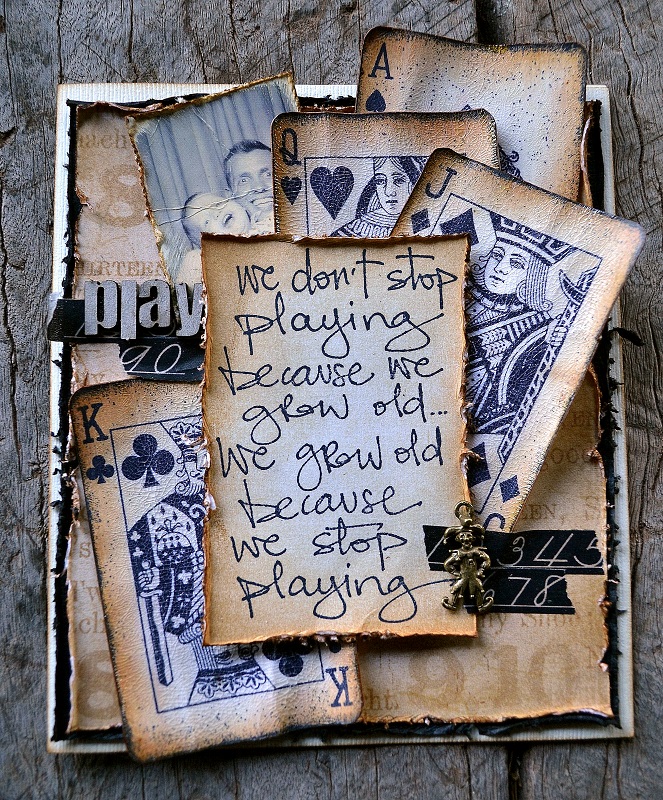 A
Q
J
play
90
we don't stop
playing
because we
grow old...
We grow old
because
we stop
playing
K
345
78
K